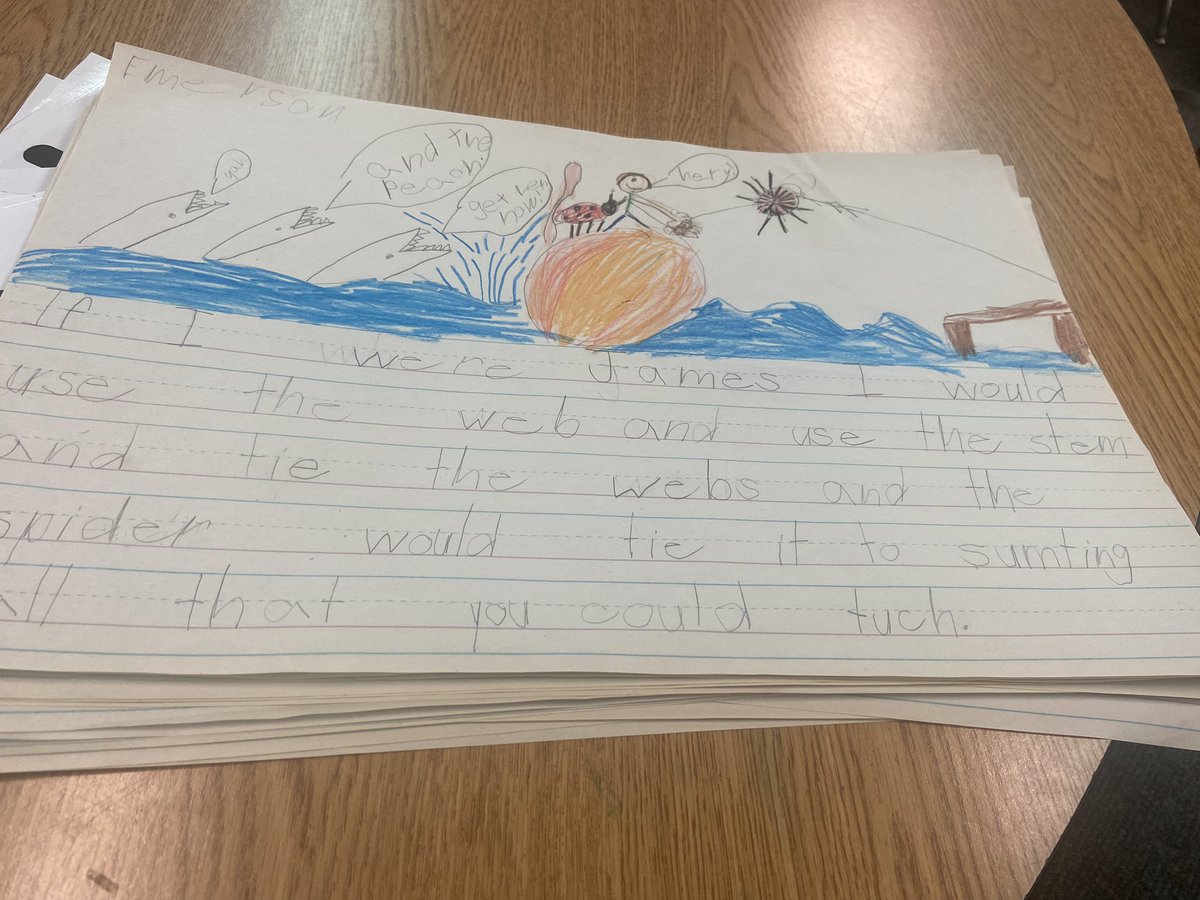 Emerson
and the
peach!
hery!
If I were James I would
use the web and use the stem
and tie the webs and the
spider would tie it to sumting
all that you could tuch.